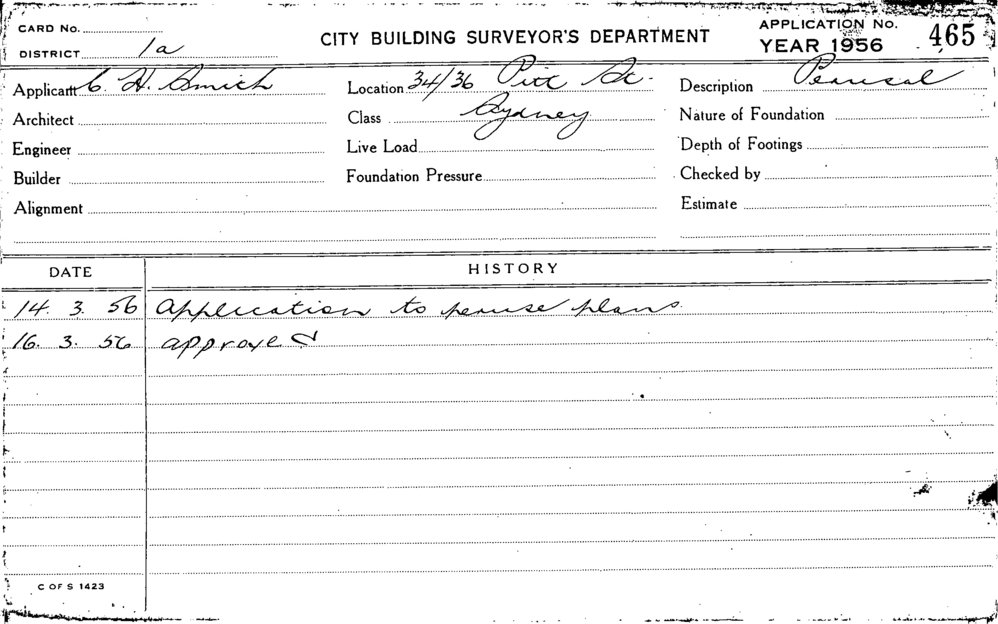 CARD No.
DISTRICT 1a
CITY BUILDING SURVEYOR'S DEPARTMENT
APPLICATION No. 465
YEAR 1956
Applicant C. H. Smith
Location 34/36 Pitt St.
Description Perusal
Architect
Class Sydney
Nature of Foundation
Engineer
Live Load
Depth of Footings
Builder
Foundation Pressure
Checked by
Alignment
Estimate
DATE HISTORY
14. 3. 56 Application to peruse plans.
16. 3. 56 approved
C OF S 1423